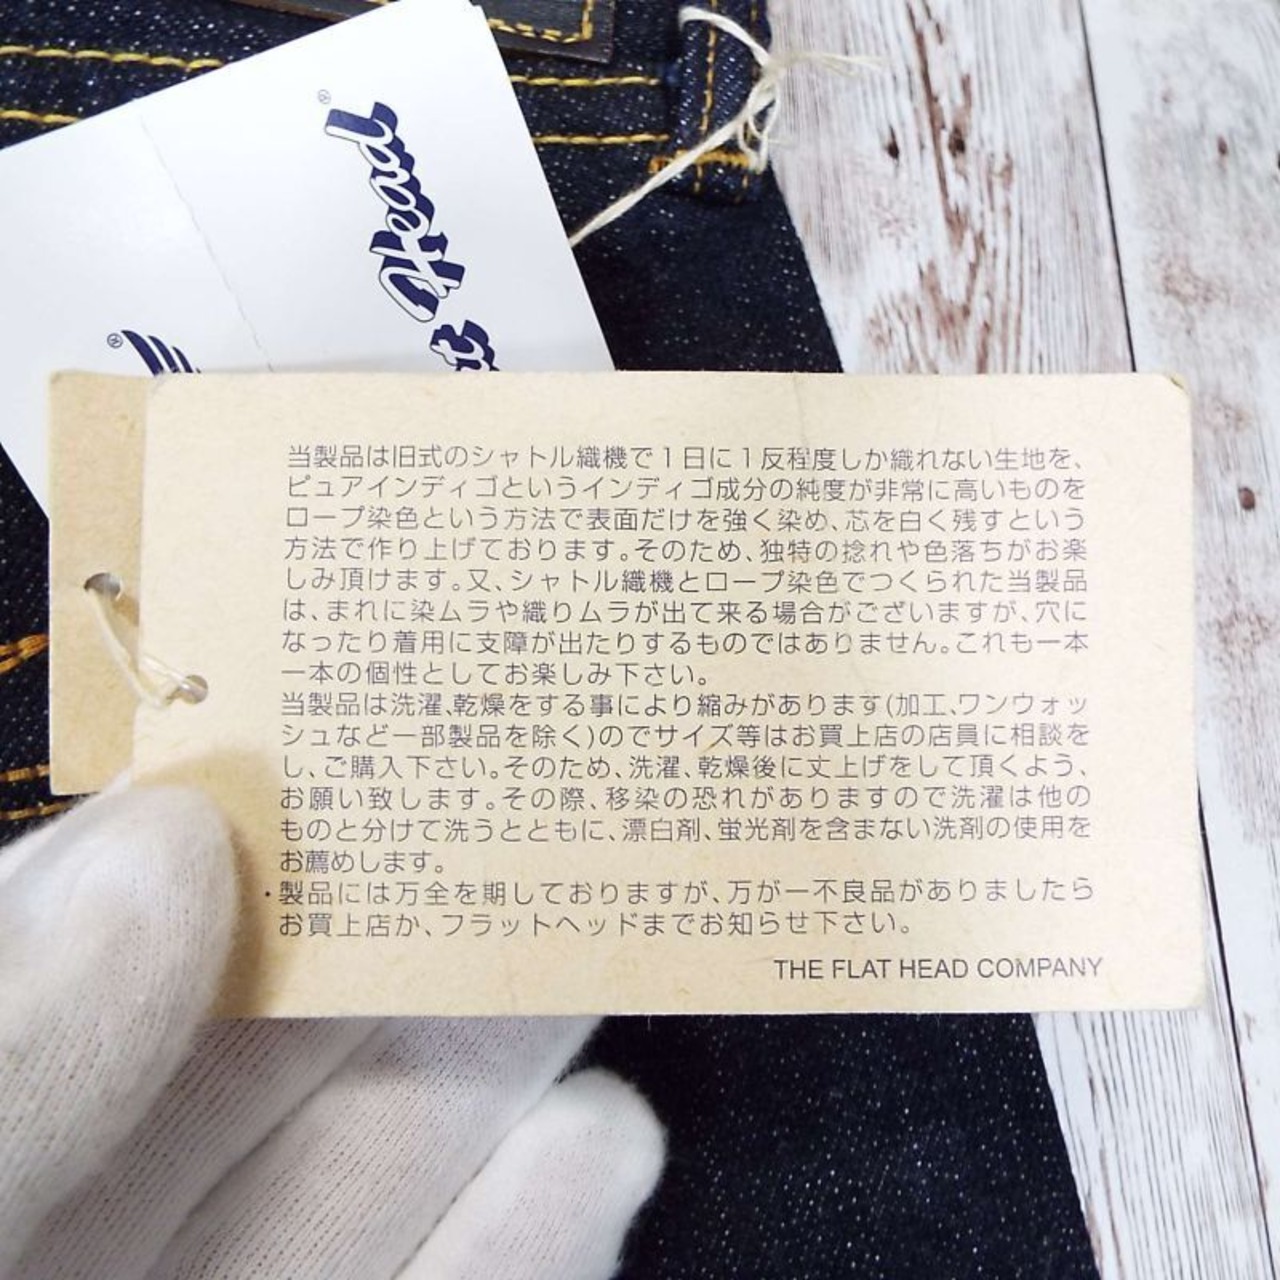 Head
当製品は旧式のシャトル織機で1日に1反程度しか織れない生地を、
ピュアインディゴというインディゴ成分の純度が非常に高いものを
ロープ染色という方法で表面だけを強く染め、芯を白く残すという
方法で作り上げております。そのため、独特の捻れや色落ちがお楽
しみ頂けます。又、シャトル織機とロープ染色でつくられた当製品
は、まれに染ムラや織りムラが出て来る場合がございますが、穴に
なったり着用に支障が出たりするものではありません。これも一本
一本の個性としてお楽しみ下さい。
当製品は洗濯、乾燥をする事により縮みがあります(加工、ワンウォッ
シュなど一部製品を除く)のでサイズ等はお買上店の店員に相談を
し、ご購入下さい。そのため、洗濯、乾燥後に丈上げをして頂くよう、
お願い致します。その際、移染の恐れがありますので洗濯は他の
ものと分けて洗うとともに、漂白剤、蛍光剤を含まない洗剤の使用を
お薦めします。
・製品には万全を期しておりますが、万が一不良品がありましたら
お買上店か、フラットヘッドまでお知らせ下さい。
THE FLAT HEAD COMPANY